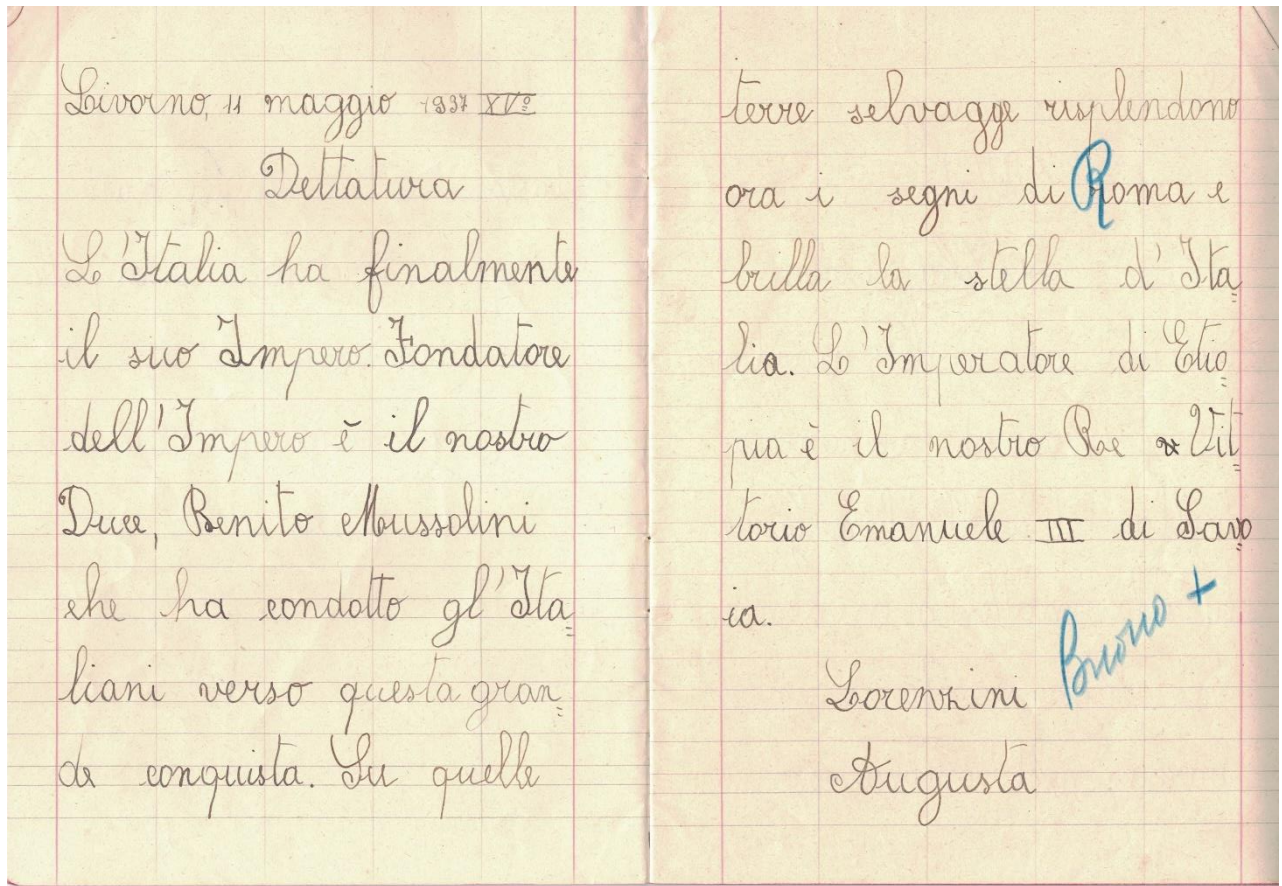 Livorno, 11 maggio 1937 XVº
Dettatura
L'Italia ha finalmente
il suo Impero. Fondatore
dell'Impero è il nostro
Duce, Benito Mussolini
che ha condotto gl'Ita=
liani verso questa gran=
de conquista. Su quelle
terre selvagge risplendono
ora i segni di Roma e
brilla la stella d'Ita=
lia. L'Imperatore di Etio=
pia è il nostro Re Vit=
torio Emanuele III di Savo=
ia.
Buono +
Lorenzini
Augusta